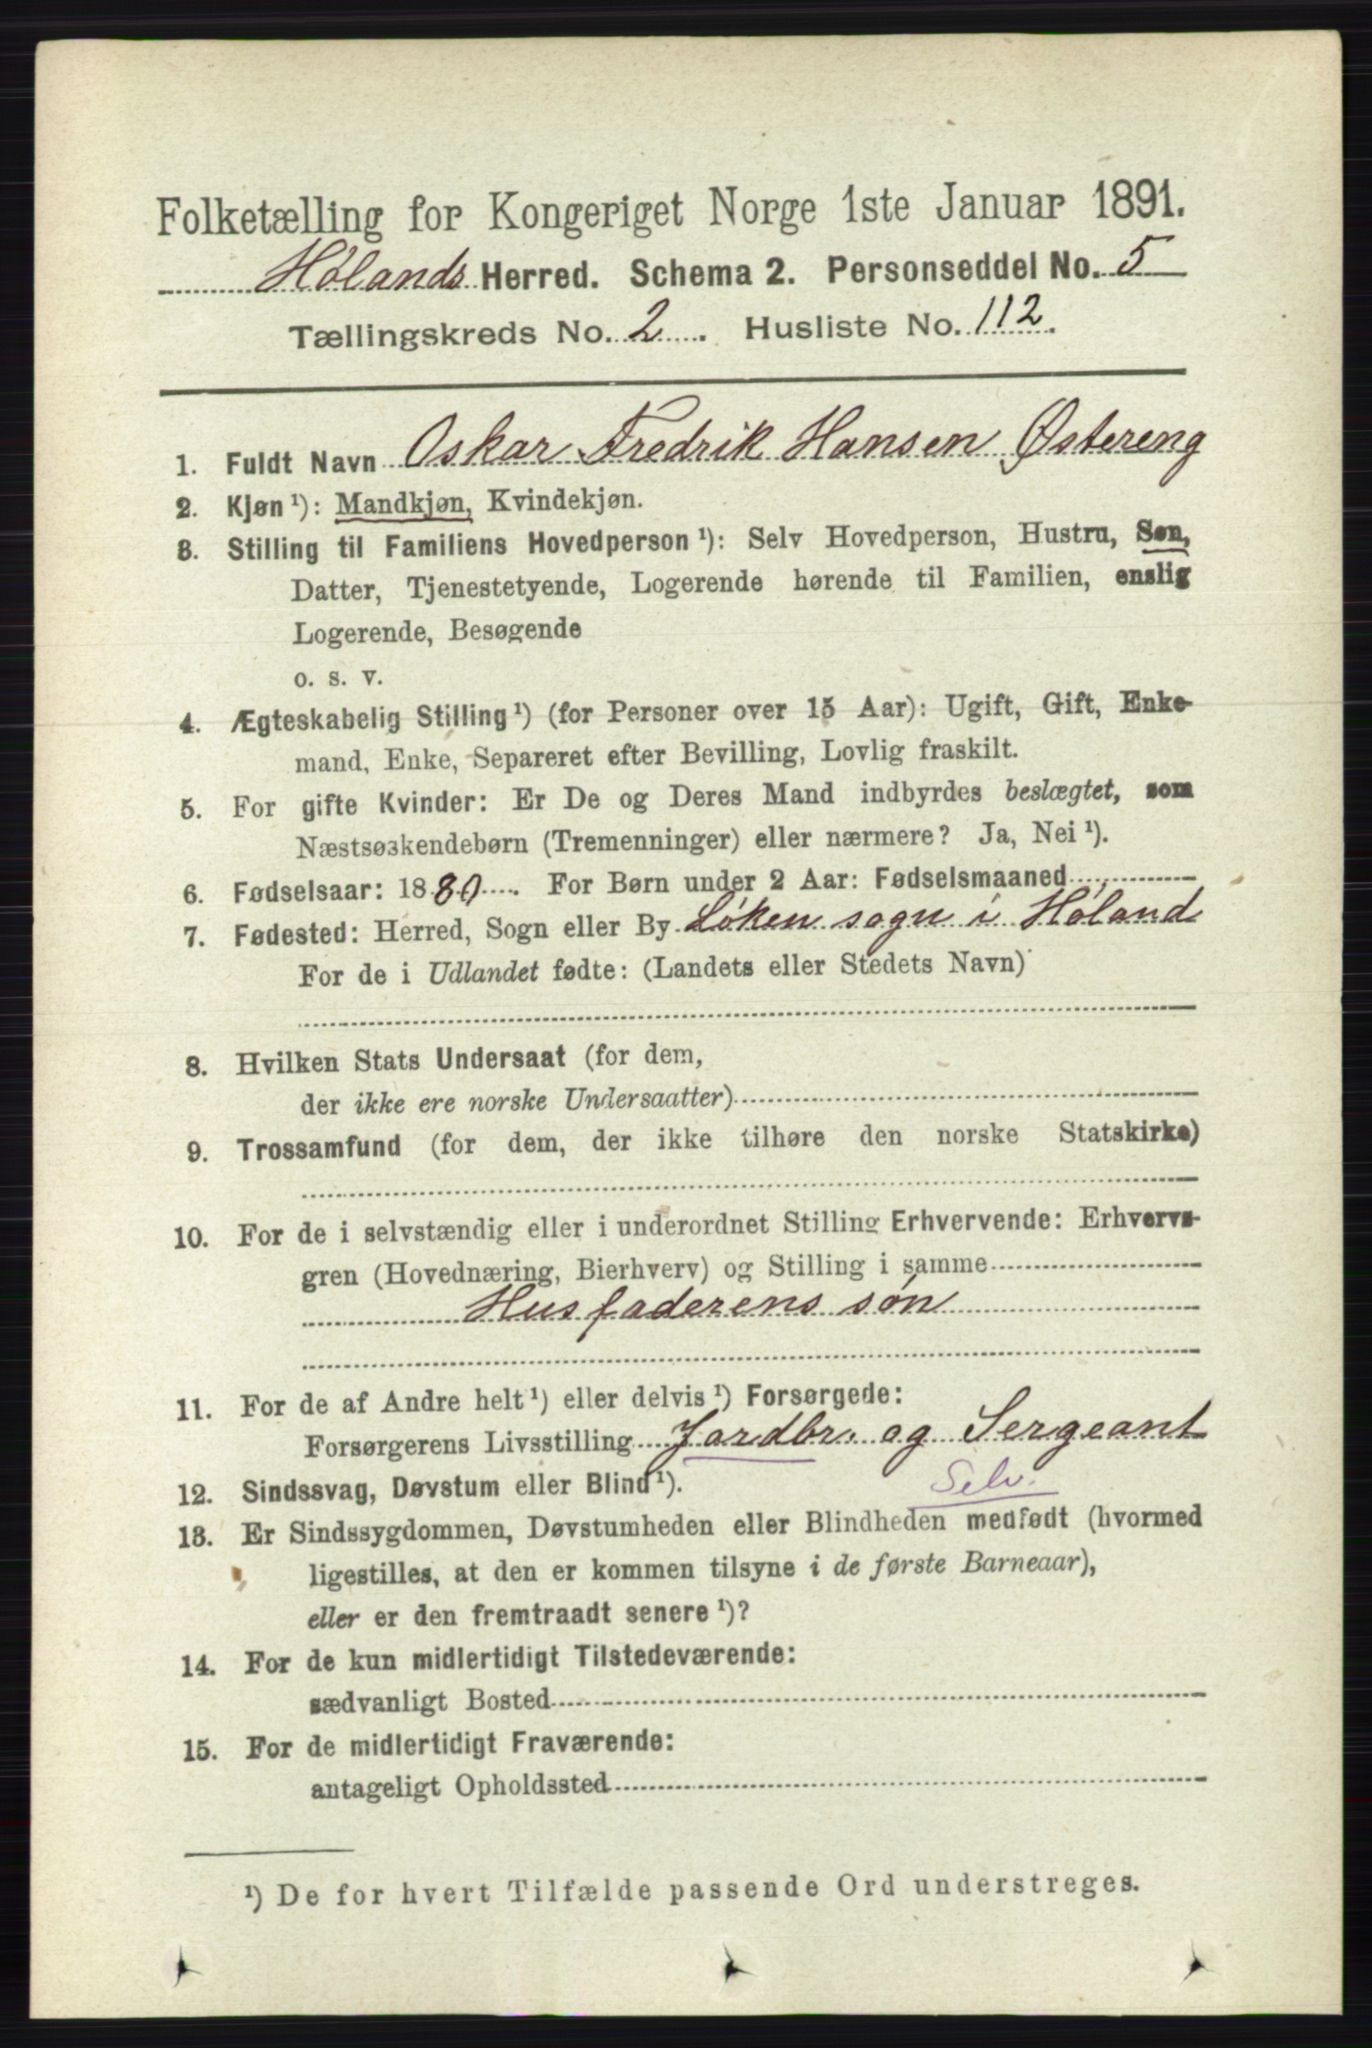 Folketælling for Kongeriget Norge 1ste Januar 1891.
Hølands Herred. Schema 2. Personseddel No. 5
Tællingskreds No. 2. Husliste No. 112.
1. Fuldt Navn Oskar Fredrik Hansen Østereng
2. Kjøn ¹): Mandkjøn, Kvindekjøn.
3. Stilling til Familiens Hovedperson ¹): Selv Hovedperson, Hustru, Søn,
Datter, Tjenestetyende, Logerende hørende til Familien, enslig
Logerende, Besøgende
o. s. v.
4. Ægteskabelig Stilling ¹) (for Personer over 15 Aar): Ugift, Gift, Enke-
mand, Enke, Separeret efter Bevilling, Lovlig fraskilt.
5. For gifte Kvinder: Er De og Deres Mand indbyrdes beslægtet, som
Næstsøskendebørn (Tremenninger) eller nærmere? Ja, Nei ¹).
6. Fødselsaar: 1880. For Børn under 2 Aar: Fødselsmaaned
7. Fødested: Herred, Sogn eller By Løken sogn i Høland
For de i Udlandet fødte: (Landets eller Stedets Navn)
8. Hvilken Stats Undersaat (for dem,
der ikke ere norske Undersaatter)
9. Trossamfund (for dem, der ikke tilhøre den norske Statskirke)
10. For de i selvstændig eller i underordnet Stilling Erhvervende: Erhvervs-
gren (Hovednæring, Bierhverv) og Stilling i samme
Husfaderens søn
11. For de af Andre helt ¹) eller delvis ¹) Forsørgede:
Forsørgerens Livsstilling Jordbr. og Sergeant
12. Sindssvag, Døvstum eller Blind ¹). Selv.
13. Er Sindssygdommen, Døvstumheden eller Blindheden medfødt (hvormed
ligestilles, at den er kommen tilsyne i de første Barneaar),
eller er den fremtraadt senere ¹)?
14. For de kun midlertidigt Tilstedeværende:
sædvanligt Bosted
15. For de midlertidigt Fraværende:
antageligt Opholdssted
¹) De for hvert Tilfælde passende Ord understreges.